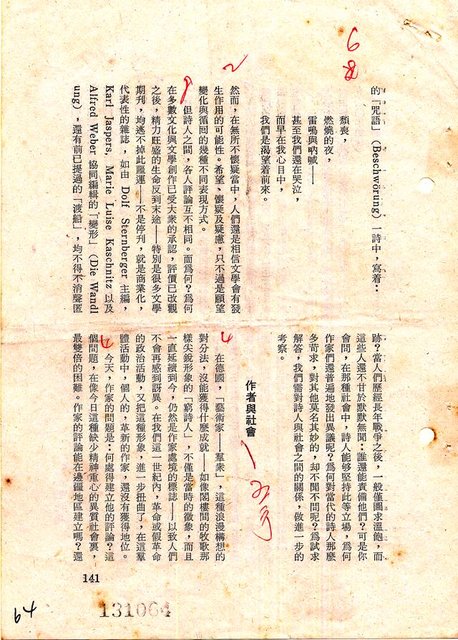 的「咒語」(Beschwörung)一詩中，寫着：
類喪，
燃燒的夜，
雷鳴與吶喊——
甚至我們還在哭泣，
而早在我心目中，
我們是渴望着前來。
然而，在無所不懷疑當中，人們還是相信文學會有發
生作用的可能性。希望、懷疑及疑慮，只不過是願望
變化與循回的幾種不同表現方式。
但詩人之間，各人評論互不相同。而爲何？爲何
在多數文化與文學創作已受大衆的承認，評價已改觀
之後，精力旺盛的生命反到末途——特別是很多文學
期刊，均逃不掉此厄運——不是停刊，就是商業化，
代表性的雜誌，如由 Dolf Sternberger 主編，
Karl Jaspers, Marie Luise Kaschnitz 以及
Alfred Weber 協同編輯的「變形」(Die Wandl
ung)，還有前已提過的「渡船」，均不得不消聲匿
跡？當人們歷經長年戰爭之後，一般僅圖求溫飽，而
這些人還不甘於默默無聞：誰還能責備他們？可是你
會問，在那種社會中，詩人能够堅持此等立場，爲何
作家們還普遍地發出異議呢？爲何對當代的詩人那麼
多苛求，對其他莫名其妙的，却不聞不問呢？爲試求
解答，我們需對詩人與社會之間的關係，做進一步的
考察。
作者與社會
在德國，「藝術家——羣衆」，這種浪漫構想的
對分法，沒能獲得什麼成就——如像閣樓間的牧歌那
樣尖銳形象的「窮詩人」，不僅是當時的徵象，而且
一直延續到今，仍然是作家處境的標誌——以致人們
不會再感到訝異。在我們這一世紀內，革命或假革命
的政治活動，又把這種形象，進一步扭曲了，在這羣
體活動中，個人的，革新的作家，還沒有獲得地位。
今天，作家的問題是：何處得建立他的評論？這
個問題，在像今日這種缺少精神重心的異質社會裏，
最雙倍的困難。作家的評論能在邊疆地區建立嗎？還
141
131064
64